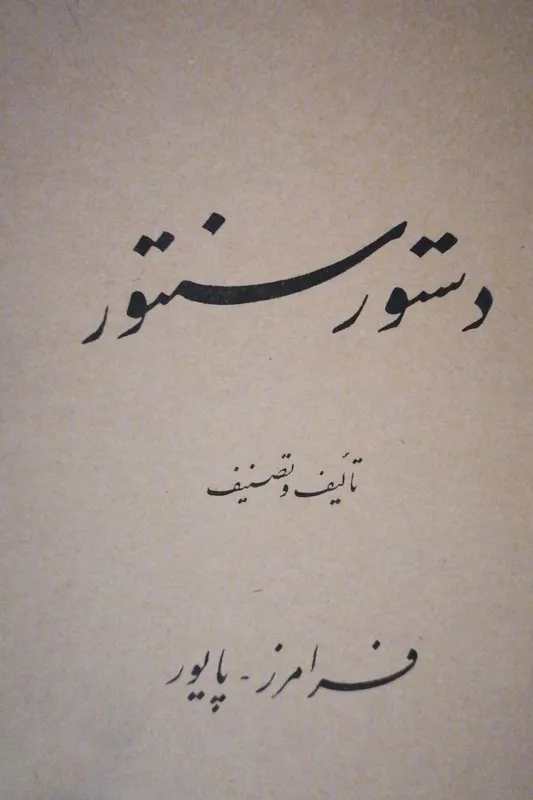 دستور سنتور
تألیف و تصنیف
فرامرز - پایور